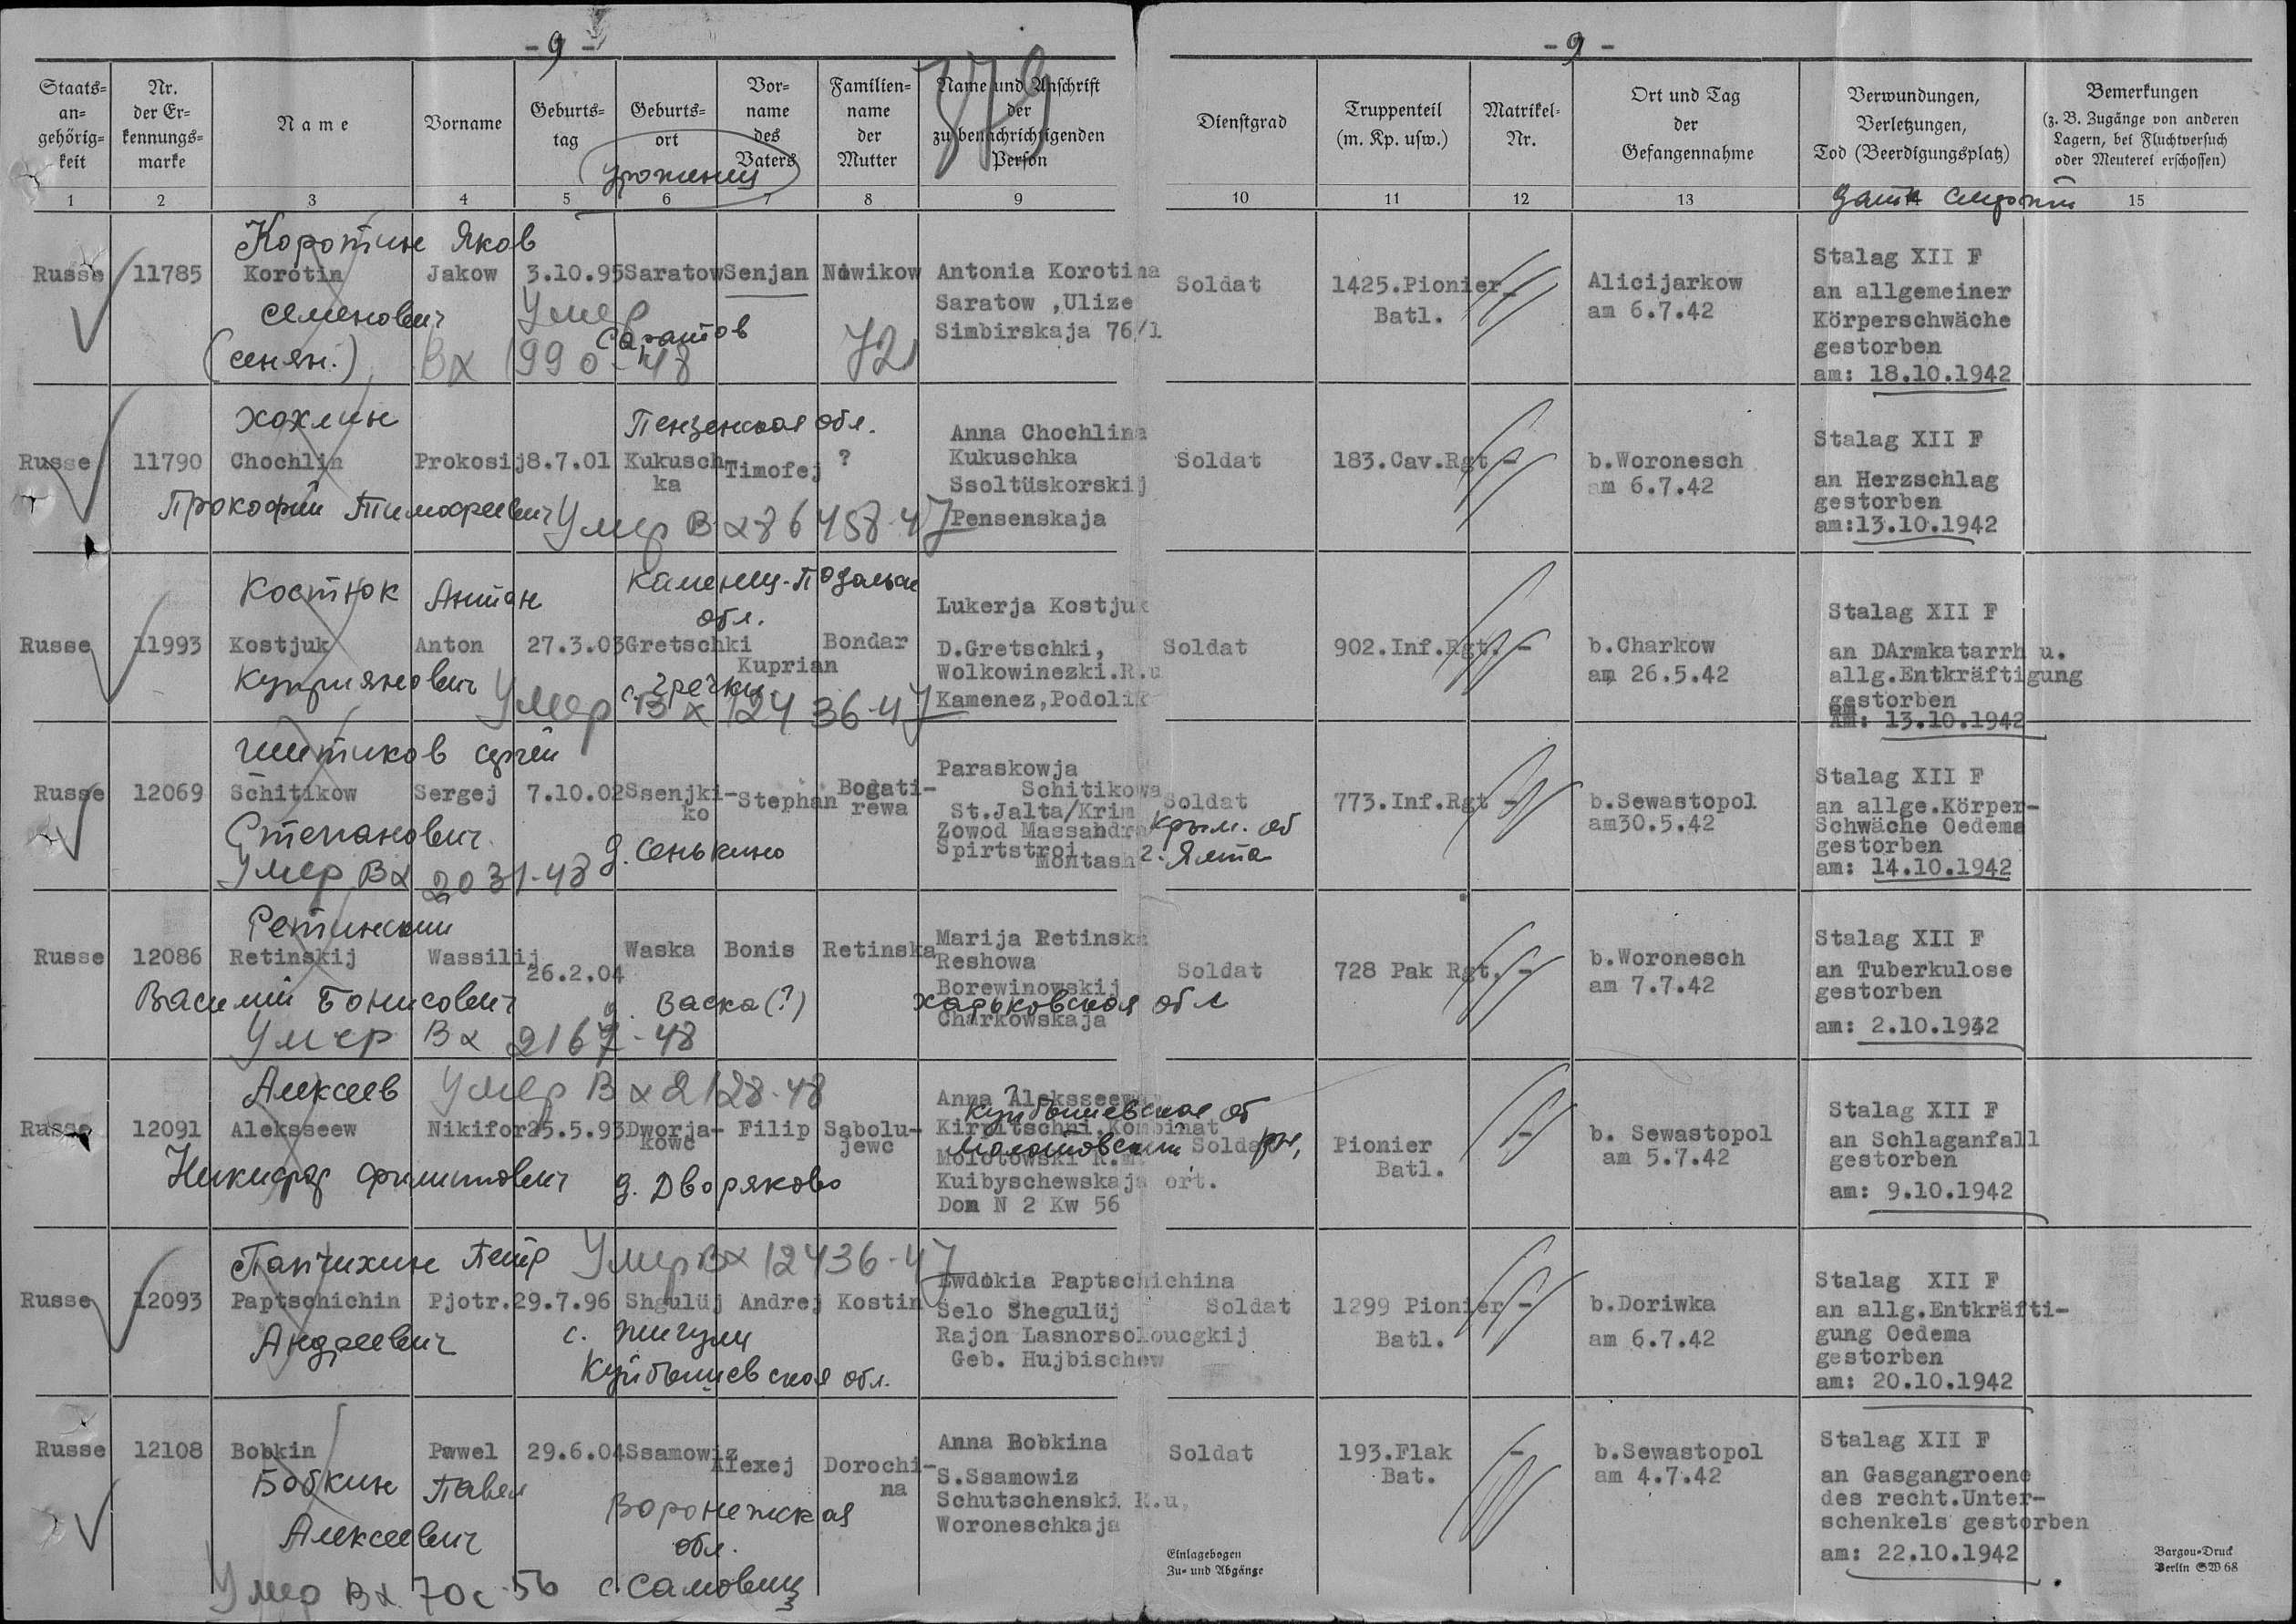 - 9 -
- 9 -
379
Staats-
an-
gehörig-
keit
Nr.
der Er-
kennungs-
marke
Name
Vorname
Geburts-
tag
Geburts-
ort
Vor-
name
des
Vaters
Familien-
name
der
Mutter
Name und Anschrift
der
zu benachrichtigenden
Person
Dienstgrad
Truppenteil
(m. Kp. usw.)
Matrikel-
Nr.
Ort und Tag
der
Gefangennahme
Verwundungen,
Verletzungen,
Tod (Beerdigungsplatz)
Bemerkungen
(z. B. Zugänge von anderen
Lagern, bei Fluchtversuch
oder Meuterei erschossen)
уроженец
1 2 3 4 5 6 7 8 9 10 11 12 13 14 15
дата смерти
Коротин Яков
Russe 11785 Korotin Jakow 3.10.95 Saratow Senjan Nowikow
Antonia Korotina
Saratow ,Ulize
Simbirskaja 76/1
Soldat
1425.Pionier
Batl.
-
Alicijarkow
am 6.7.42
Stalag XII F
an allgemeiner
Körperschwäche
gestorben
am: 18.10.1942
Семенович
Умер
Саратов
(Сенян.)
Вх 1990-48
72
Хохлин
Пензенская обл.
Russe 11790 Chochlin Prokosij 8.7.01 Kukusch-
ka
Timofej ?
Anna Chochlina
Kukuschka
Ssoltüskorskij
Pensenskaja
Soldat
183.Cav.Rgt -
b.Woronesch
am 6.7.42
Stalag XII F
an Herzschlag
gestorben
am:13.10.1942
Прокофий Тимофеевич
Умер Вх 86458-47
Костюк Антон
Каменец-Подольск
обл.
Russe 11993 Kostjuk Anton 27.3.03 Gretschki
Kuprian
Bondar
Lukerja Kostjuk
D.Gretschki,
Wolkowinezki.R.u
Kamenez,Podolik
Soldat
902.Inf.Rgt. -
b.Charkow
am 26.5.42
Stalag XII F
an DArmkatarrh u.
allg.Entkräftigung
gestorben
am: 13.10.1942
Куприянович
с. Гречки
Умер Вх 12436-47
Шитиков Сергей
Russe 12069 Schitikow Sergej 7.10.02 Ssenjki-
ko
Stephan
Bogati-
rewa
Paraskowja
Schitikowa
St.Jalta/Krim
Zowod Massandra
Spirtstroj
Montash
Soldat
Крым. об
г. Ялта
773.Inf.Rgt -
b.Sewastopol
am30.5.42
Stalag XII F
an allge.Körper-
Schwäche Oedema
gestorben
am: 14.10.1942
Степанович
д. Сенькино
Умер Вх 2031-48
Ретинский
Russe 12086 Retinskij Wassilij
26.2.04
Waska Bonis Retinska
Marija Retinska
Reshowa
Borewinowskij
Charkowskaja
Харьковская обл
Soldat
728 Pak Rgt. -
b.Woronesch
am 7.7.42
Stalag XII F
an Tuberkulose
gestorben
am: 2.10.1942
Василий Бонисович
д. Васка (?)
Умер Вх 2167-48
Алексеев
Умер Вх 2128-48
Russe 12091 Aleksseew Nikifor 25.5.93 Dworja-
kowc
Filip
Sabolu-
jewc
Anna Aleksseewa
Kirpitschni.Kombinat
Molotowski R.
Kuibyschewskaja ort.
Dom N 2 Kw 56
Куйбышевская об
Молотовский рн,
Soldat
Pionier
Batl.
-
b. Sewastopol
am 5.7.42
Stalag XII F
an Schlaganfall
gestorben
am: 9.10.1942
Никифор Филиппович
д. Дворяково
Папчихин Петр
Умер Вх 12436-47
Russe 12093 Paptschichin Pjotr. 29.7.96 Shgulüj Andrej Kostin
Ewdokia Paptschichina
Selo Shegulüj
Rajon Lasnorsoloucgkij
Geb. Hujbischew
Soldat
1299 Pionier
Batl.
-
b.Doriwka
am 6.7.42
Stalag XII F
an allg.Entkräfti-
gung Oedema
gestorben
am: 20.10.1942
Андреевич
с. Жигули
Куйбышевская обл.
Russe 12108 Bobkin Pawel 29.6.04 Ssamowiz
Alexej
Dorochi-
na
Anna Bobkina
S.Ssamowiz
Schutschenski R.u,
Woroneschkaja
Soldat
193.Flak
Bat.
-
b.Sewastopol
am 4.7.42
Stalag XII F
an Gasgangroene
des recht.Unter-
schenkels gestorben
am: 22.10.1942
Бобкин Павел
Алексеевич
Воронежская
обл.
с. Самовец
Умер Вх 70с-56
Einlagebogen
Zu- und Abgänge
Bargou-Druck
Berlin SW 68